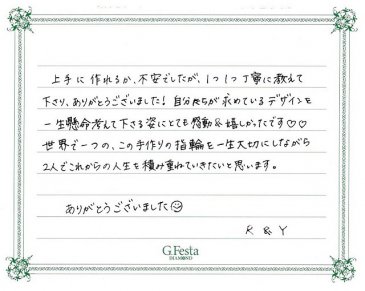 上手に作れるか、不安でしたが、1つ1つ丁寧に教えて
下さり、ありがとうございました！自分たちが求めているデザインを
一生懸命考えて下さる姿にとても感動&嬉しかったです♡♡
世界で一つの、この手作りの指輪を一生大切にしながら
2人でこれからの人生を積み重ねていきたいと思います。
ありがとうございました☺
K & Y
G.Festa
DIAMOND